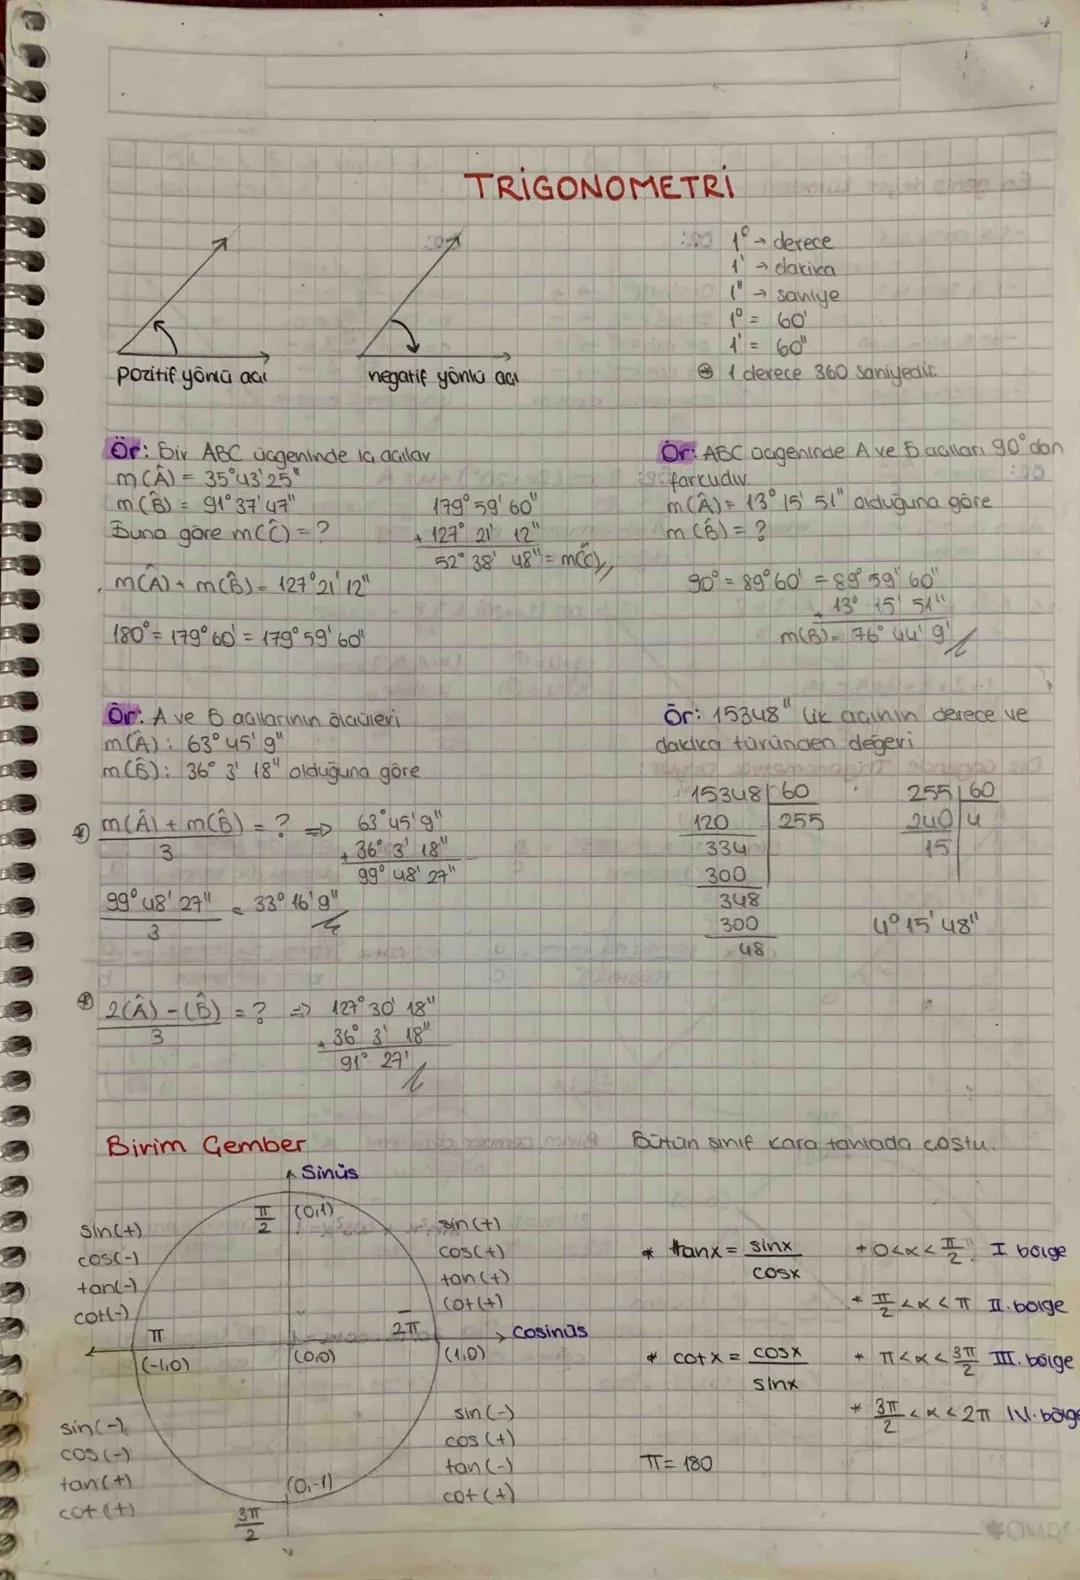 TRİGONOMETRİ
pozitif yönlü açı
negatif yönlü açı
1° → derece
1' → dakika
1" → saniye
1° = 60'
1' = 60"
⊛ 1 derece 360 saniyedir.
Ör: Bir ABC üçgeninde iç açılar
m(Â) = 35°43'25"
m(B̂) = 91°37'47"
Buna göre m(Ĉ) = ?
m(Â) + m(B̂) = 127°21'12"
180° = 179°60' = 179°59'60"
179°59'60"
127° 21' 12"
52° 38' 48" = m(Ĉ)
Ör: ABC üçgeninde A ve B açıları 90°dan
farkudır
m(Â) = 13° 15' 51" olduğuna göre
m(B̂) = ?
90° = 89°60' = 89°59'60"
13° 15' 51"
m(B) = 76° 44' 9'
Ör: A ve B açılarının ölçüleri
m(Â) : 63°45'9"
m(B̂) : 36° 3' 18" olduğuna göre
⊛ m(Â) + m(B̂) = ? ⇒ 63°45'9"
3
+ 36° 3' 18"
99° 48' 27"
99°48'27" = 33°16'9"
3
⊛ 2(Â) - (B̂) = ? ⇒ 127°30' 18"
3
36° 3' 18"
91° 27'
Ör: 15348" lik açının derece ve
dakika türünden değeri
15348 60
120 255
334
300
348
300
48
255 60
240 4
15
4°15'48"
Birim Çember
Sinüs
π/2 (0,1)
sin(+)
cos(-)
tan(-)
cot(-)
sin(+)
cos(+)
tan(+)
cot(+)
π
2π
Cosinüs
(-1,0)
(0,0)
(1,0)
sin(-)
cos(-)
tan(+)
cot(+)
sin(-)
cos(+)
tan(-)
cot(+)
(0,-1)
3π/2
Bütün sınıf kara tahtada coştu.
* tanx = sinx
cosx
* cotx = cosx
sinx
π = 180
* 0<α<π/2 I bölge
* π/2<α<π II. bölge
* π<α<3π/2 III. bölge
* 3π/2<α<2π IV. bölge